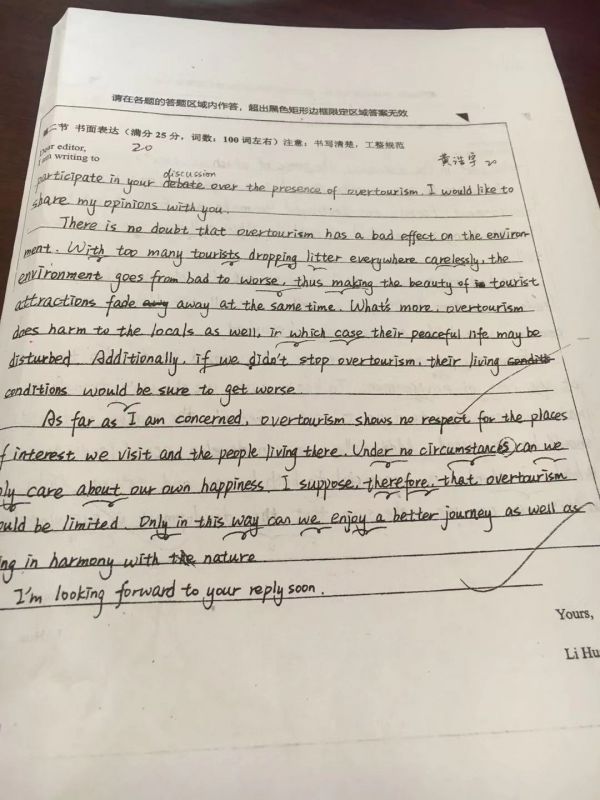 请在各题的答题区域内作答，超出黑色矩形边框限定区域答案无效
第二节 书面表达（满分25分，词数：100词左右）注意：书写清楚，工整规范
Dear editor,
20
黄浩宇 20
I am writing to
discussion
participate in your debate over the presence of overtourism. I would like to
share my opinions with you.
There is no doubt that overtourism has a bad effect on the environ-
ment. With too many tourists dropping litter everywhere carelessly, the
environment goes from bad to worse, thus making the beauty of tourist
attractions fade away at the same time. What's more, overtourism
does harm to the locals as well, in which case their peaceful life may be
disturbed. Additionally, if we didn't stop overtourism, their living
conditions would be sure to get worse.
As far as I am concerned, overtourism shows no respect for the places
f interest we visit and the people living there. Under no circumstances can we
ly care about our own happiness. I suppose, therefore, that overtourism
ould be limited. Only in this way can we enjoy a better journey as well as
ng in harmony with the nature.
I'm looking forward to your reply soon.
Yours,
Li Hu